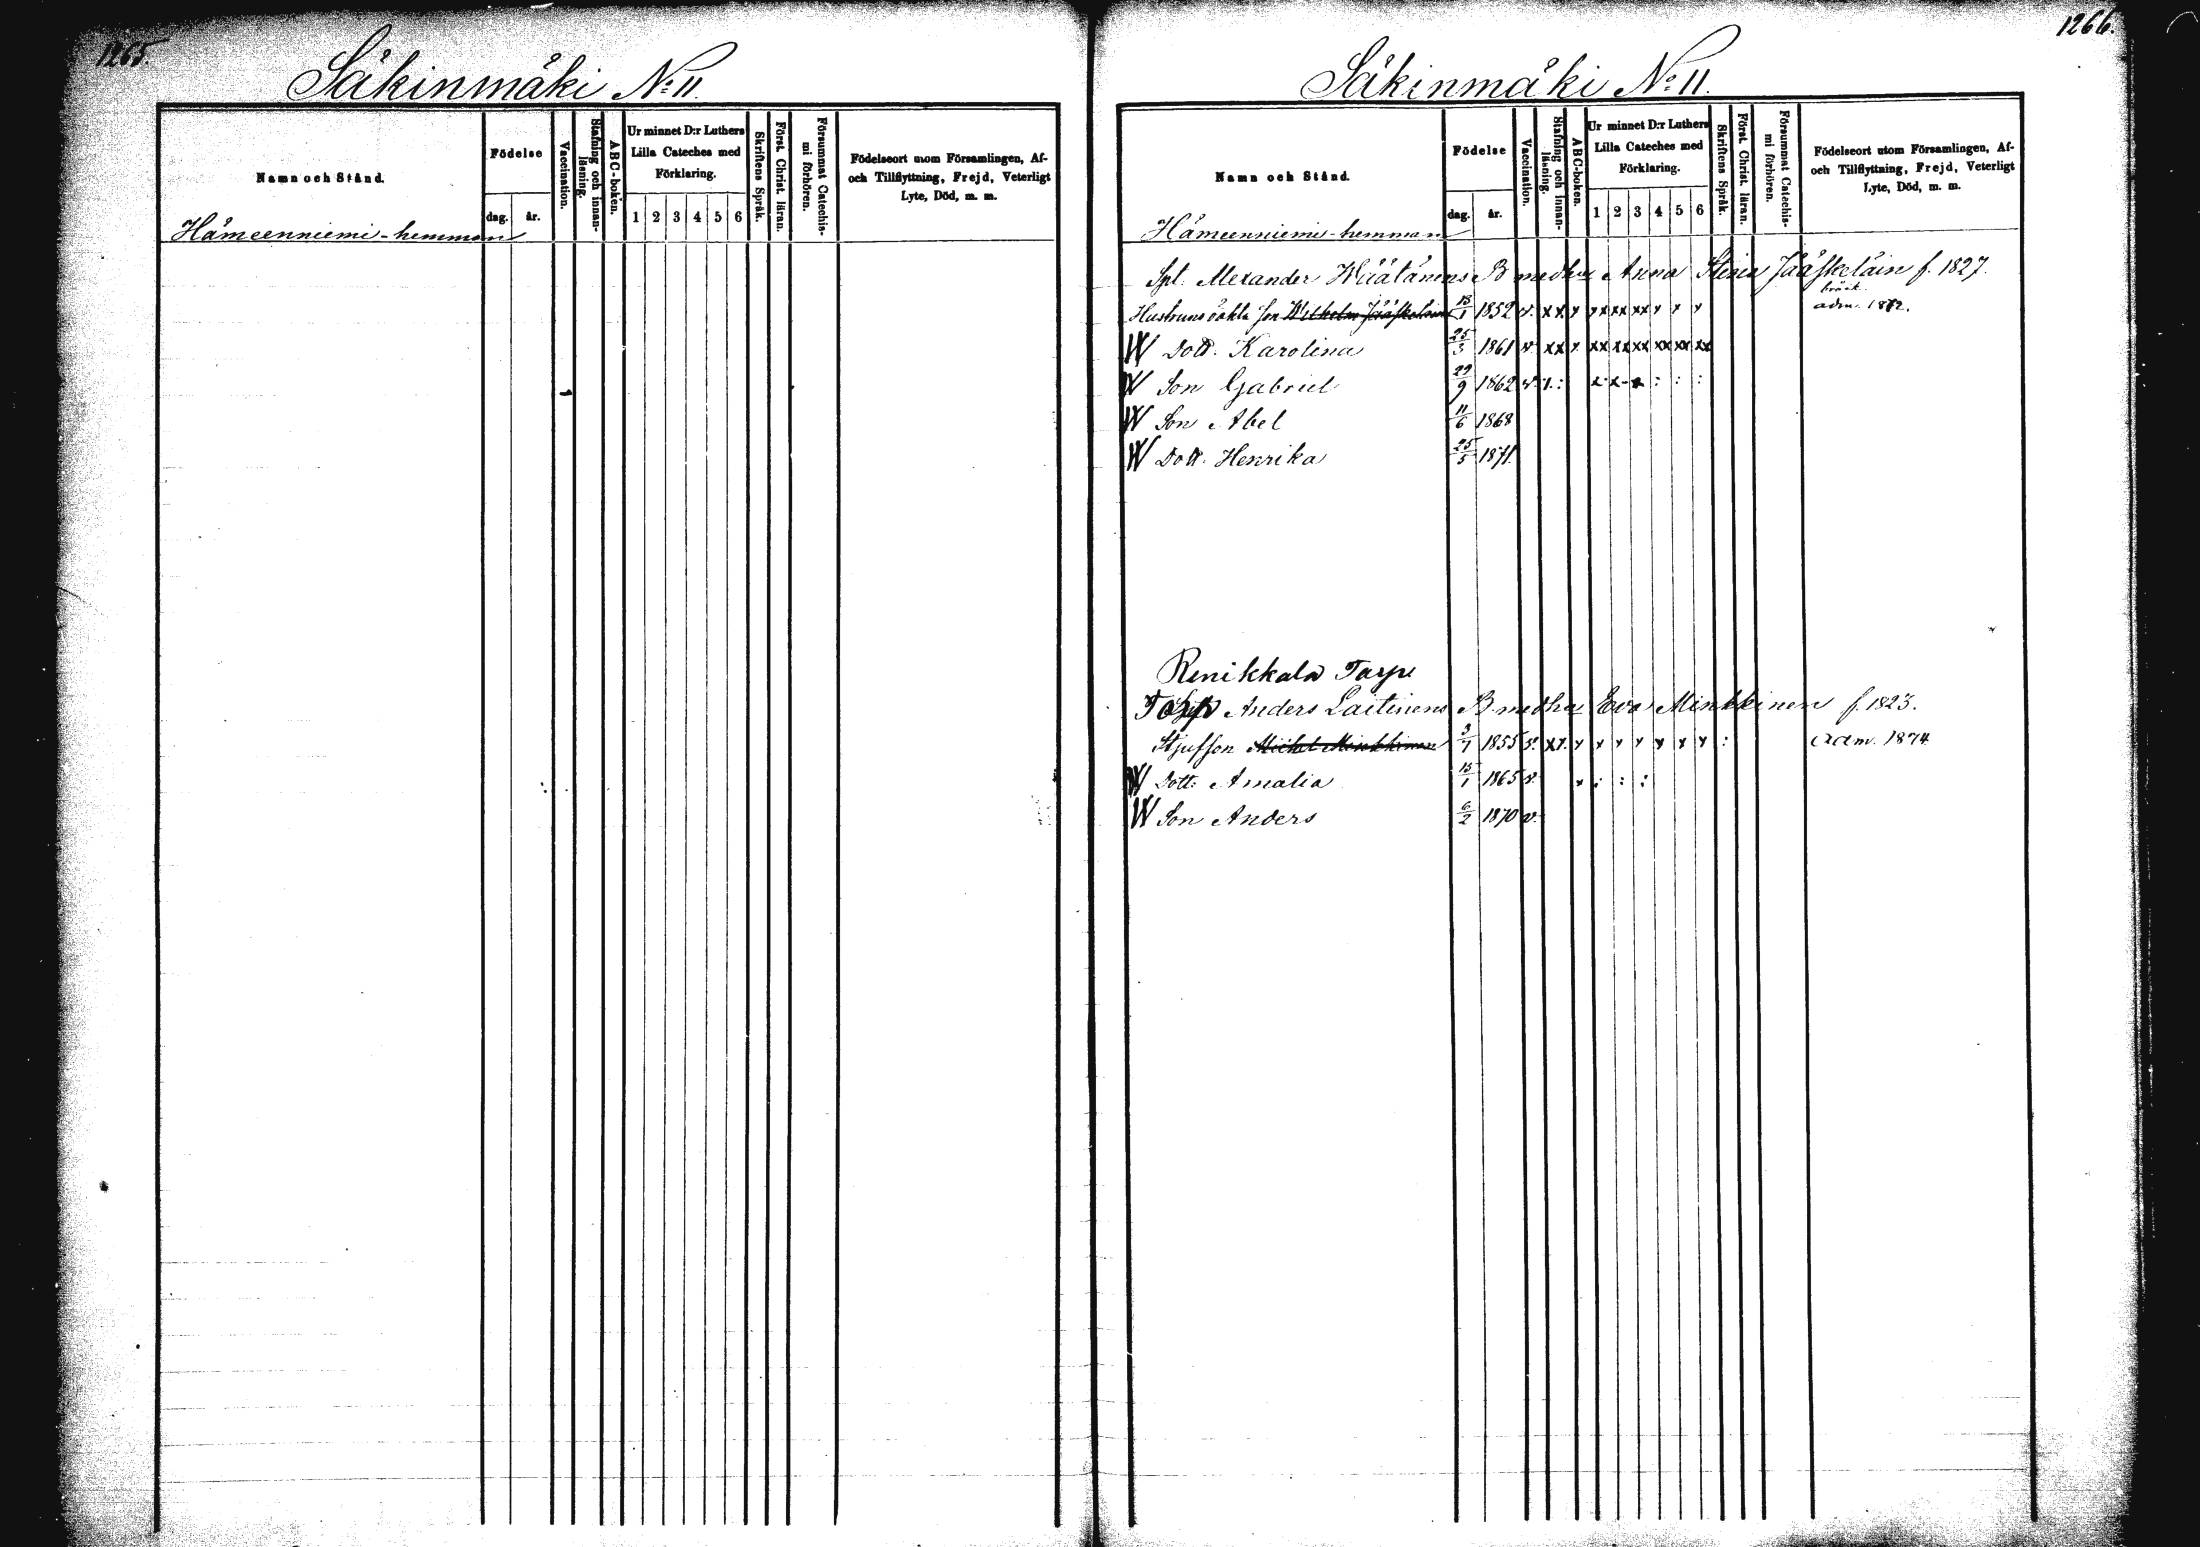 1265.
Säkinmäki No 11.
Namn och Stånd.
Födelse
dag. år.
Vaccination.
Stafning och innan-läsning.
ABC-boken.
Ur minnet D:r Luthers
Lilla Cateches med
Förklaring.
1 2 3 4 5 6
Skriftens Språk.
Först. Christ. läran.
Försummat Catechis-mi förhören.
Födelseort utom Församlingen, Af-
och Tillflyttning, Frejd, Veterligt
Lyte, Död, m. m.
Hämeenniemi-hemman
1266.
Säkinmäki No 11.
Namn och Stånd.
Födelse
dag. år.
Vaccination.
Stafning och innan-läsning.
ABC-boken.
Ur minnet D:r Luthers
Lilla Cateches med
Förklaring.
1 2 3 4 5 6
Skriftens Språk.
Först. Christ. läran.
Försummat Catechis-mi förhören.
Födelseort utom Församlingen, Af-
och Tillflyttning, Frejd, Veterligt
Lyte, Död, m. m.
Hämeenniemi-hemman
Alexander Wäätänens B. med hu Anna Stina Jääskeläin f. 1827.
Hustruns oäkta son Wilhelm Jääskeläinen 1852 v. xx x xx xx xx x x x adm. 1872.
W Dott. Karolina 25/3 1861 v. xx x xx xx xx xx xx xx
W Son Gabriel 29/9 1862 v.
W Son Abel 11/6 1868
W Dott. Henrika 25/5 1871.
Renikkala Torp
Torp Anders Laitinens B. med hu Eva Minkkinen f. 1823.
Stjufson Michel Minkkinen 1855 v. xx x x x x x x x : adm. 1874
W Dott: Amalia 1865 v. x : : :
W Son Anders 6/2 1870 v.